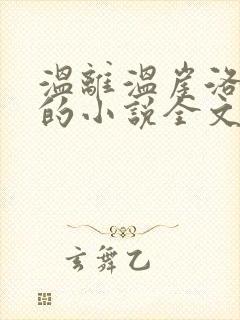 温離温崖洛
的小說全文
玄舞乙